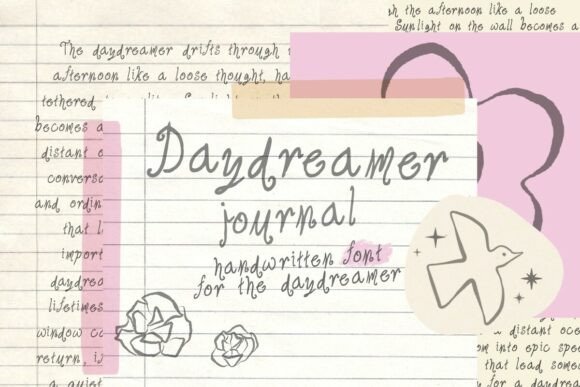 the afternoon like a loose
Sunlight on the wall becomes a
The daydreamer drifts through
afternoon like a loose thought, ha
tethered
becomes a
distant
and ordin
that l
import
daydrea
lifetimes
window
return,
a quiet
Daydreamer
journal
handwritten font
for the daydreamer
a distant oce
into epic
that lead
for a daydrea